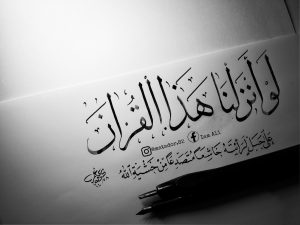 لو أنزلنا هذا القرآن
Dam Ali
على جبل لرأيته خاشعا متصدعا من خشية الله